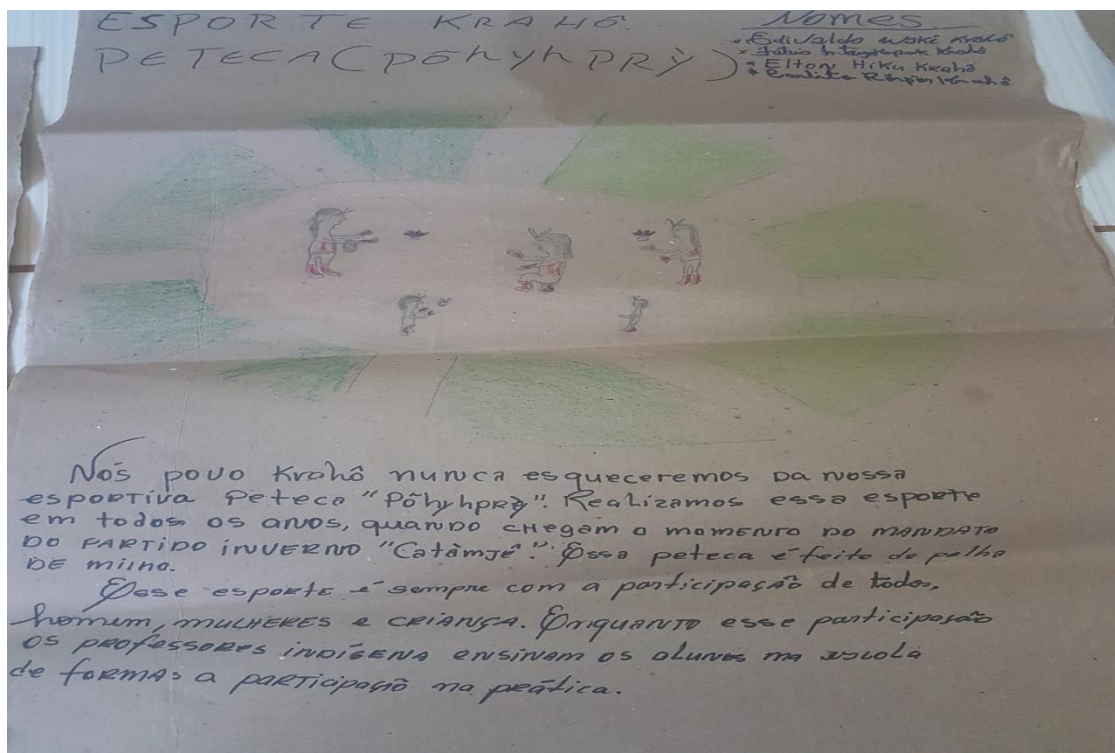 ESPORTE KRAHÔ
PETECA (PÕHYHPRỲ)
Nomes
* Edivaldo Wakê Krahô
* Krahô
* Elton Hiku Krahô
* Krahô
Nós povo Krahô nunca esqueceremos da nossa
esportiva Peteca "Põhyhprỳ". Realizamos essa esporte
em todos os anos, quando chegam o momento do mandato
do partido inverno "Catàmjê". Essa peteca é feito de palha
de milho.
Esse esporte é sempre com a participação de todos,
homem, mulheres e criança. Enquanto esse participação
os professores indígena ensinam os alunos na escola
de formas a participação na prática.